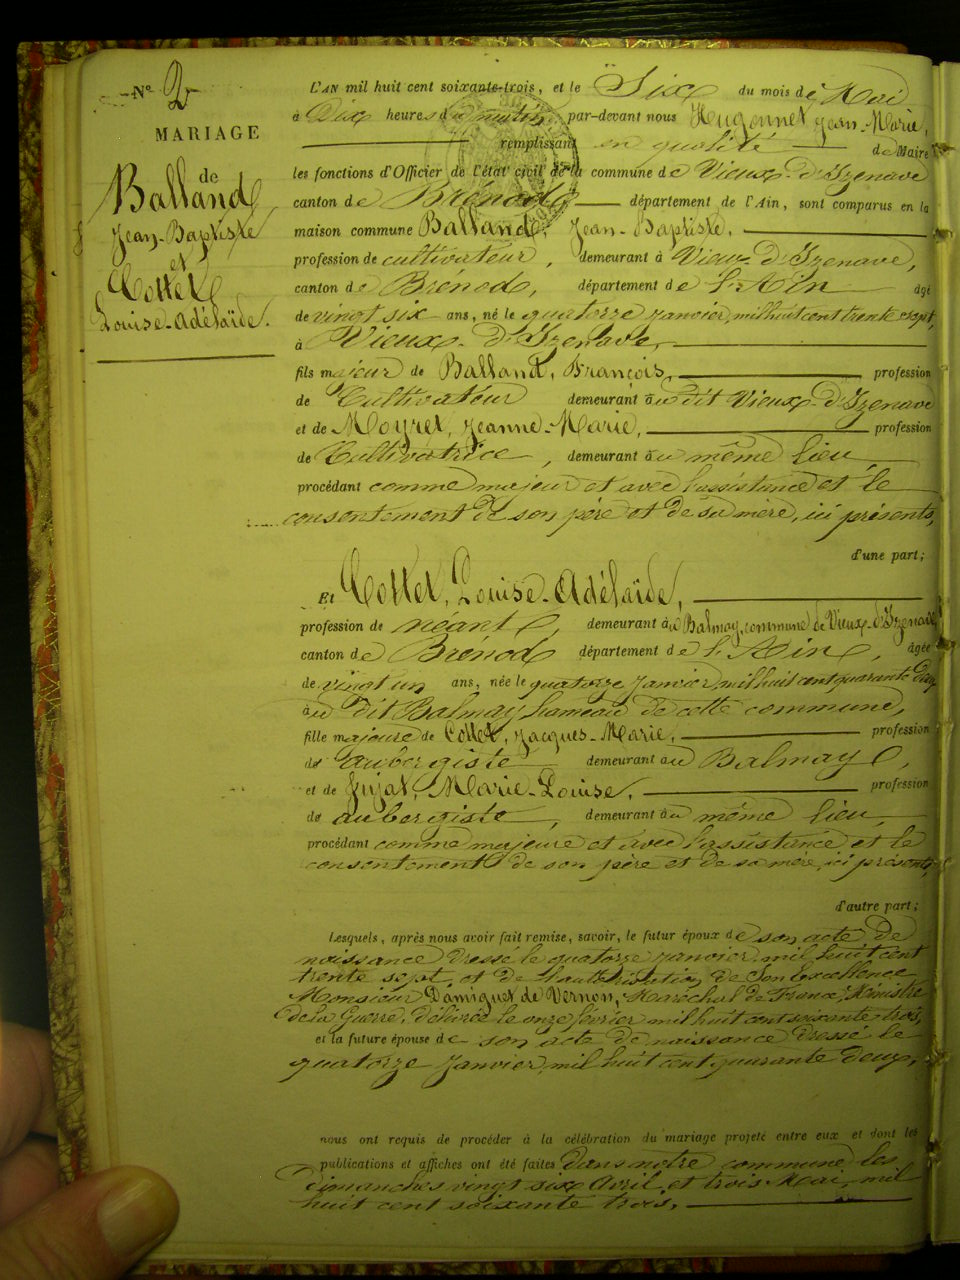 N° 2
MARIAGE
de
Balland
Jean-Baptiste
et
Cottet
Louise-Adélaïde.
L'AN mil huit cent soixante-trois, et le Six du mois de Mai
à Dix heures du matin, par-devant nous Hugonnet Jean-Marie,
remplissant en qualité de Maire
les fonctions d'Officier de l'état civil de la commune de Vieux-d'Izenave
canton de Brénod département de l'Ain, sont comparus en la
maison commune Balland, Jean-Baptiste,
profession de cultivateur, demeurant à Vieux-d'Izenave,
canton de Brénod, département de l'Ain âgé
de vingt six ans, né le quatorze janvier, mil huit cent trente sept,
à Vieux-d'Izenave,
fils majeur de Balland, François, profession
de Cultivateur demeurant au dit Vieux-d'Izenave
et de Moyret, Jeanne-Marie, profession
de Cultivatrice, demeurant au même lieu,
procédant comme majeur et avec l'assistance et le
consentement de son père et de sa mère, ici présents,
d'une part;
Et Cottet, Louise-Adélaïde,
profession de néant, demeurant au Balmay, commune de Vieux-d'Izenave,
canton de Brénod département de l'Ain, âgée
de vingt un ans, née le quatorze janvier, mil huit cent quarante deux
au dit Balmay hameau de cette commune,
fille majeure de Cottet, Jacques-Marie, profession
de aubergiste demeurant au Balmay,
et de Jujat, Marie-Louise, profession
de aubergiste, demeurant au même lieu,
procédant comme majeure et avec l'assistance et le
consentement de son père et de sa mère, ici présents,
d'autre part;
Lesquels, après nous avoir fait remise, savoir, le futur époux de son acte de
naissance dressé le quatorze janvier, mil huit cent
trente sept, et de l'autorisation de Son Excellence
Monsieur Damiguet de Vernon, Maréchal de France, Ministre
de la Guerre, délivrée le onze février mil huit cent soixante trois,
et la future épouse de son acte de naissance dressé le
quatorze janvier, mil huit cent quarante deux,
nous ont requis de procéder à la célébration du mariage projeté entre eux et dont les
publications et affiches ont été faites dans notre commune les
dimanches vingt six avril et trois Mai, mil
huit cent soixante trois.